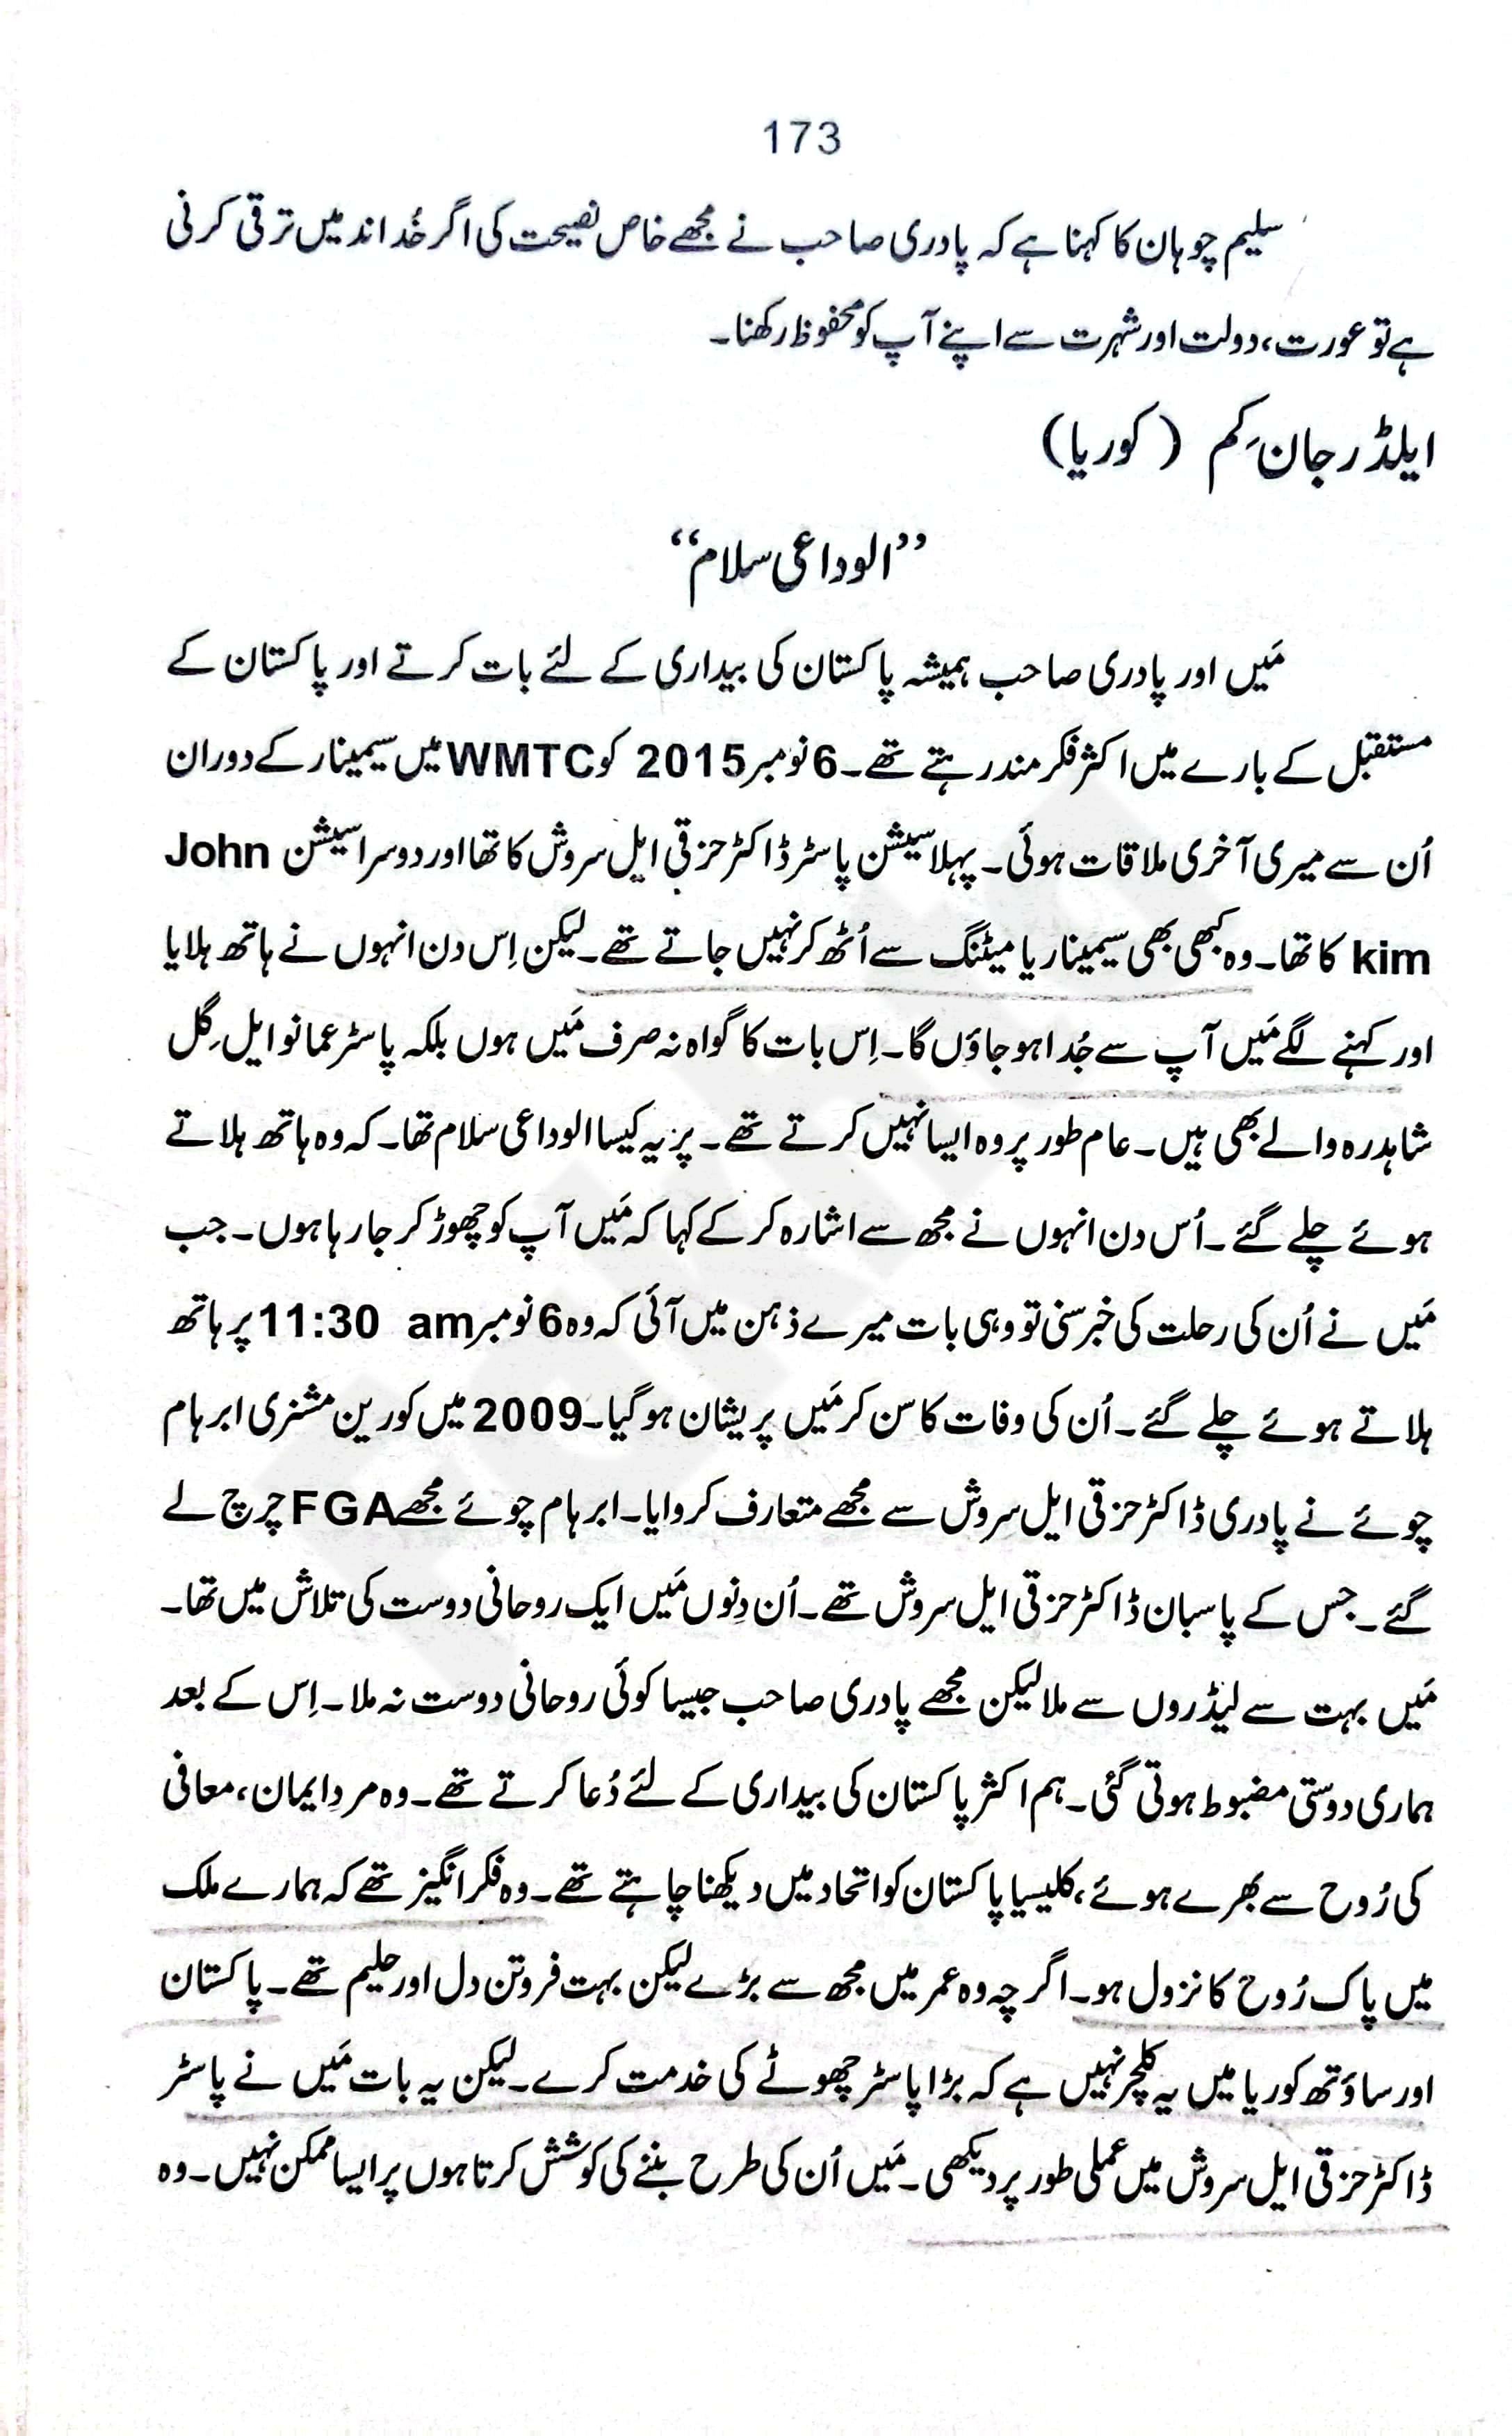 173
سلیم چوہان کا کہنا ہے کہ پادری صاحب نے مجھے خاص نصیحت کی اگر خُداند میں ترقی کرنی
ہے تو عورت، دولت اور شہرت سے اپنے آپ کو محفوظ رکھنا۔
ایلڈر جان کِم (کوریا)
”الوداعی سلام“
مَیں اور پادری صاحب ہمیشہ پاکستان کی بیداری کے لئے بات کرتے اور پاکستان کے
مستقبل کے بارے میں اکثر فکر مند رہتے تھے۔ 6 نومبر 2015 کو WMTC میں سیمینار کے دوران
اُن سے میری آخری ملاقات ہوئی۔ پہلا سیشن پاسٹر ڈاکٹر حزقی ایل سروش کا تھا اور دوسرا سیشن John
kim کا تھا۔ وہ کبھی بھی سیمینار یا میٹنگ سے اُٹھ کر نہیں جاتے تھے۔ لیکن اِس دن انہوں نے ہاتھ ہلایا
اور کہنے لگے مَیں آپ سے جُدا ہو جاؤں گا۔ اِس بات کا گواہ نہ صرف مَیں ہوں بلکہ پاسٹر عمانوایل گِل
شاہدرہ والے بھی ہیں۔ عام طور پر وہ ایسا نہیں کرتے تھے۔ پر یہ کیسا الوداعی سلام تھا۔ کہ وہ ہاتھ ہلاتے
ہوئے چلے گئے۔ اُس دن انہوں نے مجھ سے اشارہ کر کے کہا کہ مَیں آپ کو چھوڑ کر جا رہا ہوں۔ جب
مَیں نے اُن کی رحلت کی خبر سنی تو وہی بات میرے ذہن میں آئی کہ وہ 6 نومبر 11:30 am پر ہاتھ
ہلاتے ہوئے چلے گئے۔ اُن کی وفات کا سن کر مَیں پریشان ہو گیا۔ 2009 میں کورین مشنری ابرہام
چوئے نے پادری ڈاکٹر حزقی ایل سروش سے مجھے متعارف کروایا۔ ابرہام چوئے مجھے FGA چرچ لے
گئے۔ جس کے پاسبان ڈاکٹر حزقی ایل سروش تھے۔ اُن دِنوں مَیں ایک روحانی دوست کی تلاش میں تھا۔
مَیں بہت سے لیڈروں سے ملا لیکن مجھے پادری صاحب جیسا کوئی روحانی دوست نہ ملا۔ اِس کے بعد
ہماری دوستی مضبوط ہوتی گئی۔ ہم اکثر پاکستان کی بیداری کے لئے دُعا کرتے تھے۔ وہ مردِ ایمان، معافی
کی رُوح سے بھرے ہوئے، کلیسیا پاکستان کو اتحاد میں دیکھنا چاہتے تھے۔ وہ فکر انگیز تھے کہ ہمارے ملک
میں پاک رُوح کا نزول ہو۔ اگرچہ وہ عمر میں مجھ سے بڑے لیکن بہت فروتن دل اور حلیم تھے۔ پاکستان
اور ساؤتھ کوریا میں یہ کلچر نہیں ہے کہ بڑا پاسٹر چھوٹے کی خدمت کرے۔ لیکن یہ بات مَیں نے پاسٹر
ڈاکٹر حزقی ایل سروش میں عملی طور پر دیکھی۔ مَیں اُن کی طرح بننے کی کوشش کرتا ہوں پر ایسا ممکن نہیں۔ وہ